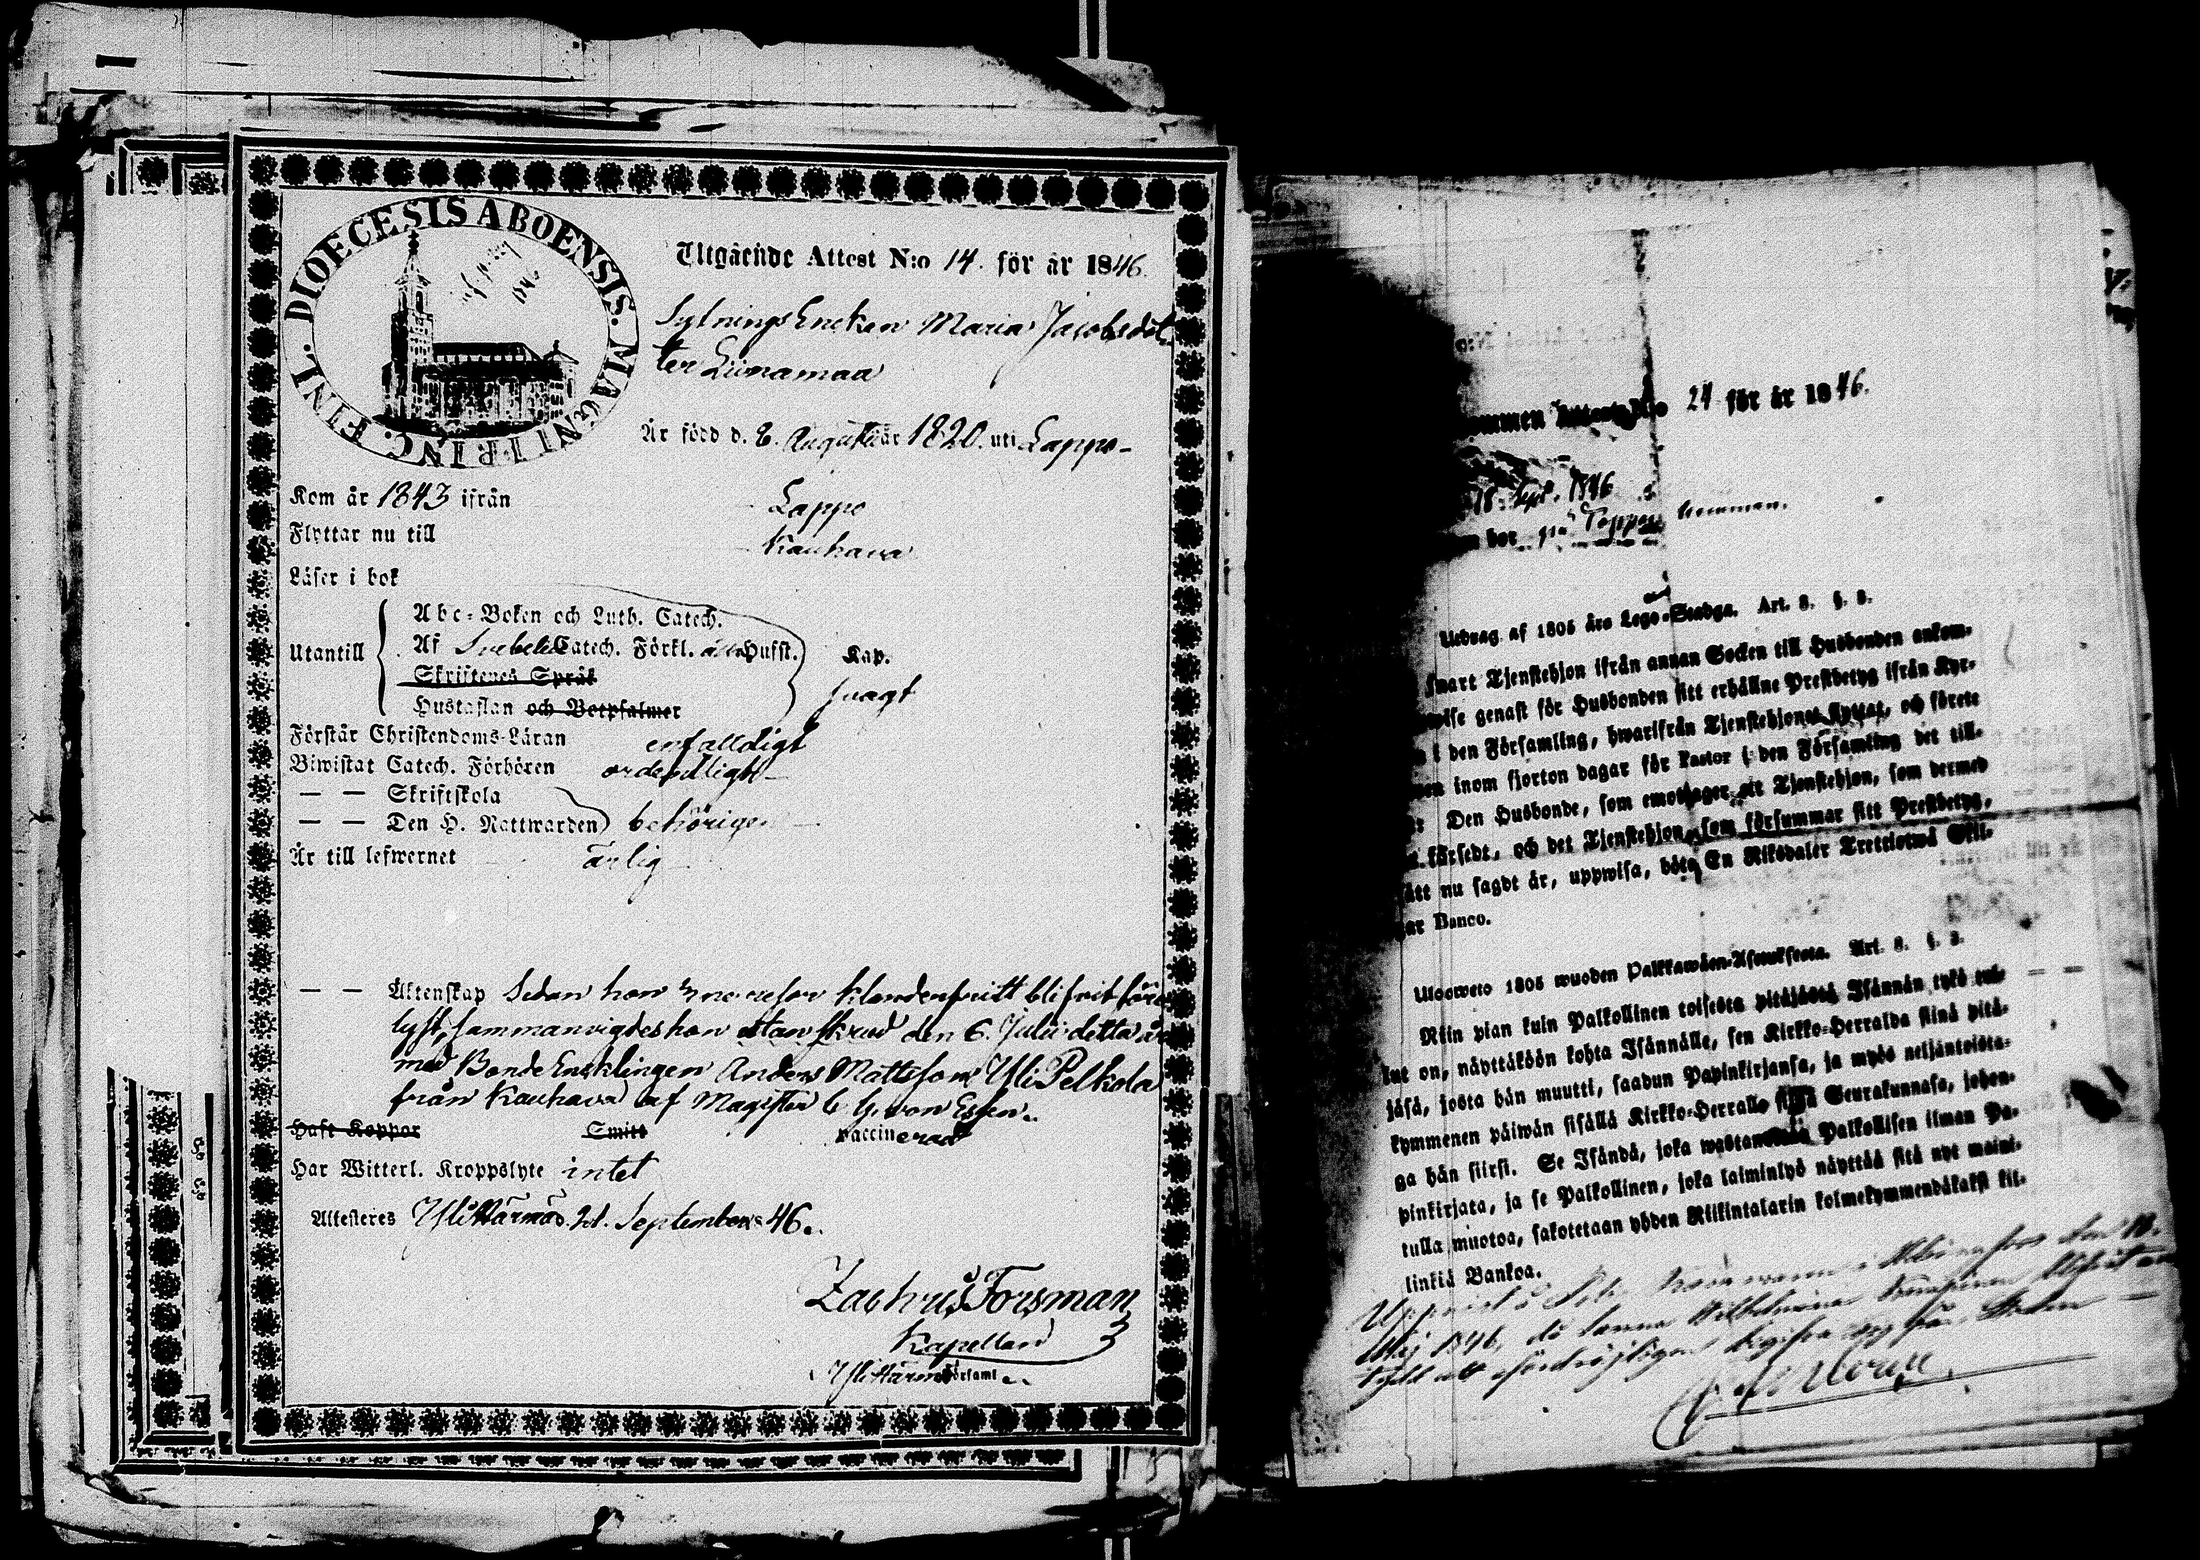 DIOECESIS ABOENSIS. MAGNI PRINC. FINL.
Utgående Attest N:o 14. för år 1846.
Sytnings Enckan Maria Jacobsdot
ter Liinamaa
Är född d. 2. Augusti år 1820. uti Lappo-
Kom år 1843 ifrån Lappo
Flyttar nu till Kauhava
Läser i bok
Utantill
Abc-Boken och Luth. Catech.
Af Svebelii Catech. Förkl. Husft. Kap.
Skriftenes Språk
svagt
Hustaflan och Botpsalmer
Förstår Christendoms-Läran enfalldigt
Biwistat Catech. Förhören ordentligt
— — Skriftskola
— — Den H. Nattwarden behörigen
Är till lefwernet ärlig
— — Äktenskap Sedan hon 3ne resor klanderfritt blifvit före
lyst, sammanvigdes hon utan skrud den 6. Julii detta år
med Bonde Encklingen Anders Mattsson Yli Pelkola
från Kauhava af Magister C G von Essen.
Haft Koppor Smitt vaccinerad
Har Witterl. Kroppslyte intet
Attesteres Ylihärmä d. 21. September 46.
Zachris Forsman
Kapellan
Ylihärmä Församl.
ommen Attest N:o 24 för år 1846.
18 Sept. 1846
bor på Lappo hemman.
Utdrag af 1805 års Lego-Stadga. Art. 8. §. 3.
snart Tjenstehjon ifrån annan Socken till Husbonden ankom-
wise genast för Husbonden sitt erhållne Prestbetyg ifrån Kyr-
i den Församling, hwarifrån Tjenstehjonet flyttat, och förete
inom fjorton dagar för Pastor i den Församling det till-
Den Husbonde, som emottager ett Tjenstehjon, som dermed
försedt, och det Tjenstehjon, som försummar sitt Prestbetyg,
sätt nu sagdt är, uppwisa, böta En Riksdaler Trettiotwå Skil-
gar Banco.
Ulosweto 1805 wuoden Palkkawäen-Asetuksesta. Art. 8. §. 3.
Niin pian kuin Palkollinen toisesta pitäjästä Isännän tykö tul-
lut on, näyttäköön kohta Isännälle, sen Kirkko-Herralda siinä pitä-
jäsä, josta hän muutti, saadun Papinkirjansa, ja myös neljäntoista-
kymmenen päiwän sisällä Kirkko-Herralle siinä Seurakunnasa, johen-
ga hän siirsi. Se Isändä, joka wastanottaa Palkollisen ilman Pa-
pinkirjata, ja se Palkollinen, joka laiminlyö näyttää sitä nyt maini-
tulla muotoa, sakotetaan yhden Riikintalarin kolmekymmendäkaksi kil-
linkiä Bankoa.